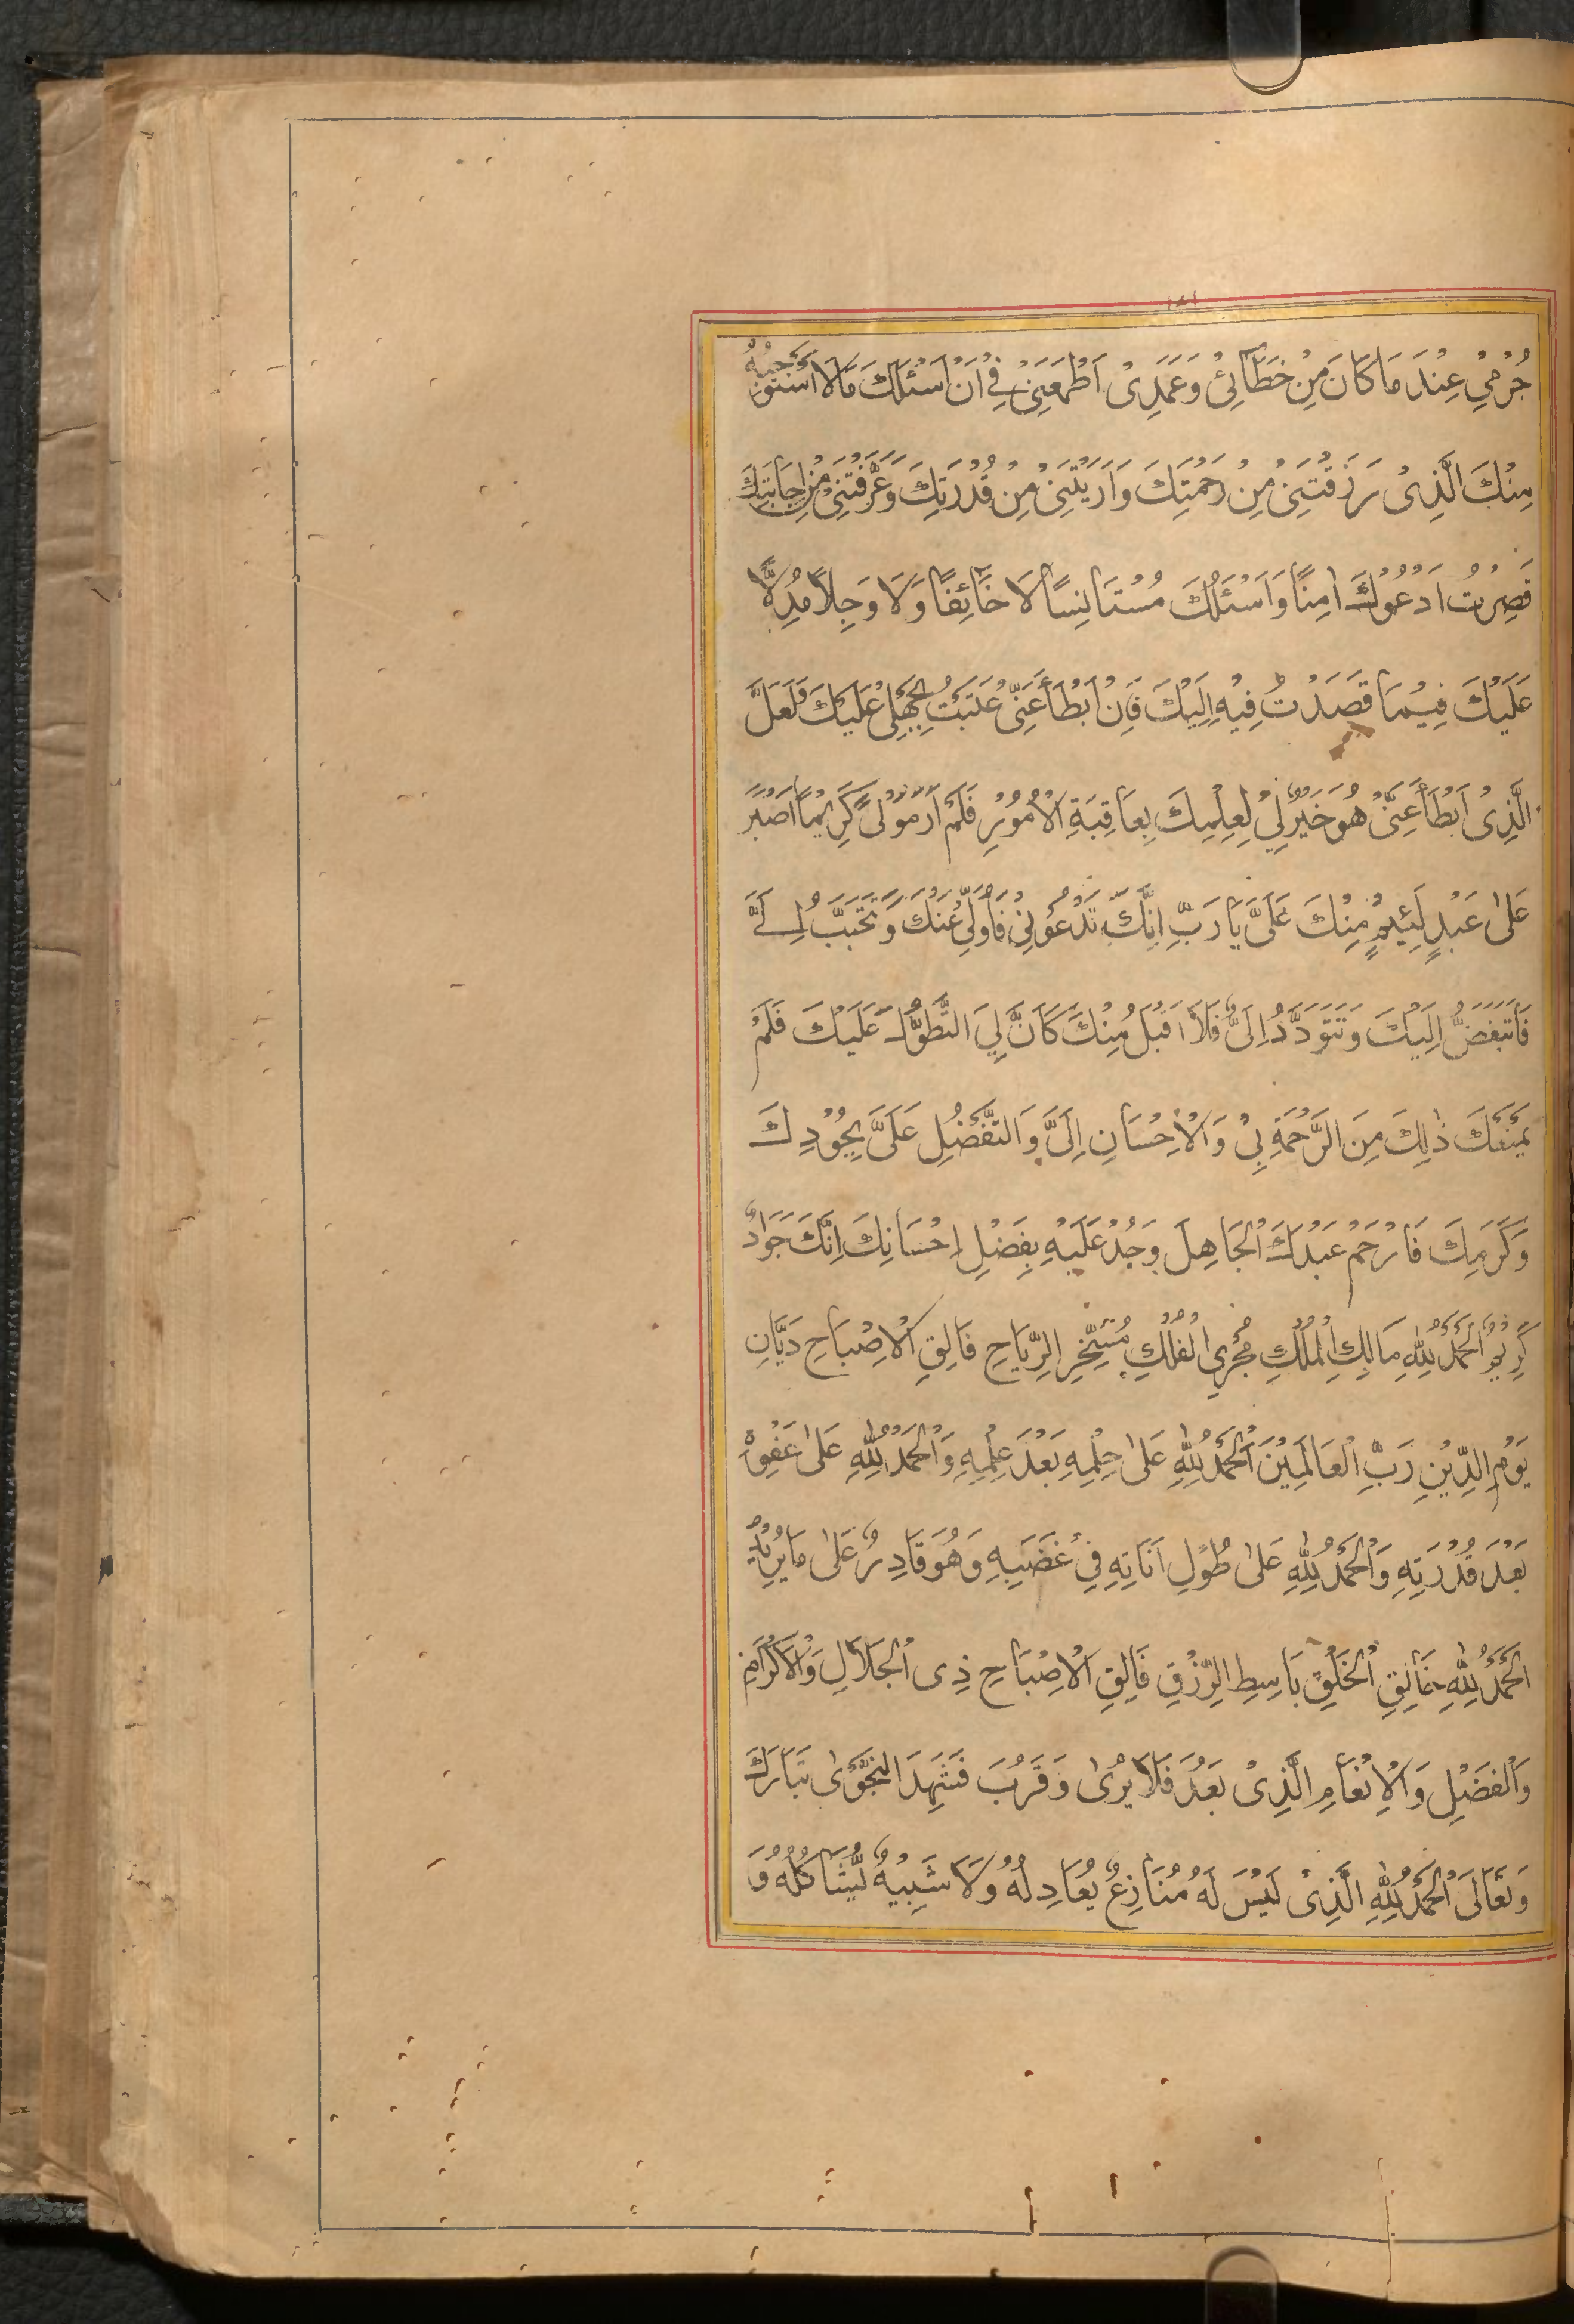 ١٤١
جُرْمِيْ عِنْدَ مَا كَانَ مِنْ خَطَائِيْ وَعَمَدِىْ اَطْمَعَنِىْ فِىْ اَنْ اَسْئَلَكَ مَا لَا اَسْتَوْجِبُهُ
مِنْكَ الَّذِىْ رَزَقْتَنِىْ مِنْ رَحْمَتِكَ وَاَرَيْتَنِىْ مِنْ قُدْرَتِكَ وَعَرَّفْتَنِىْ مِنْ اِجَابَتِكَ
فَصِرْتُ اَدْعُوْكَ اٰمِنًا وَاَسْئَلُكَ مُسْتَانِسًا لَا خَائِفًا وَلَا وَجِلًا مُدِلًّا
عَلَيْكَ فِيْمَا قَصَدْتُ فِيْهِ اِلَيْكَ فَاِنْ اَبْطَأَ عَنِّىْ عَتَبْتُ بِجَهْلِىْ عَلَيْكَ وَلَعَلَّ
الَّذِىْ اَبْطَأَ عَنِّىْ هُوَ خَيْرٌ لِىْ لِعِلْمِكَ بِعَاقِبَةِ الْاُمُوْرِ فَلَمْ اَرَ مَوْلًى كَرِيْمًا اَصْبَرَ
عَلٰى عَبْدٍ لَئِيْمٍ مِنْكَ عَلَىَّ يَا رَبِّ اِنَّكَ تَدْعُوْنِىْ فَاُوَلِّىْ عَنْكَ وَتَتَحَبَّبُ اِلَىَّ
فَاَتَبَغَّضُ اِلَيْكَ وَتَتَوَدَّدُ اِلَىَّ فَلَا اَقْبَلُ مِنْكَ كَاَنَّ لِىَ التَّطَوُّلَ عَلَيْكَ فَلَمْ
يَمْنَعْكَ ذٰلِكَ مِنَ الرَّحْمَةِ بِىْ وَالْاِحْسَانِ اِلَىَّ وَالتَّفَضُّلِ عَلَىَّ بِجُوْدِكَ
وَكَرَمِكَ فَارْحَمْ عَبْدَكَ الْجَاهِلَ وَجُدْ عَلَيْهِ بِفَضْلِ اِحْسَانِكَ اِنَّكَ جَوَادٌ
كَرِيْمٌ اَلْحَمْدُ لِلّٰهِ مَالِكِ الْمُلْكِ مُجْرِى الْفُلْكِ مُسَخِّرِ الرِّيَاحِ فَالِقِ الْاِصْبَاحِ دَيَّانِ
يَوْمِ الدِّيْنِ رَبِّ الْعَالَمِيْنَ اَلْحَمْدُ لِلّٰهِ عَلٰى حِلْمِهِ بَعْدَ عِلْمِهِ وَالْحَمْدُ لِلّٰهِ عَلٰى عَفْوِهْ
بَعْدَ قُدْرَتِهِ وَالْحَمْدُ لِلّٰهِ عَلٰى طُوْلِ اَنَاتِهِ فِىْ غَضَبِهِ وَهُوَ قَادِرٌ عَلٰى مَا يُرِيْدُ
اَلْحَمْدُ لِلّٰهِ خَالِقِ الْخَلْقِ بَاسِطِ الرِّزْقِ فَالِقِ الْاِصْبَاحِ ذِى الْجَلَالِ وَالْاِكْرَامِ
وَالْفَضْلِ وَالْاِنْعَامِ الَّذِىْ بَعُدَ فَلَا يُرٰى وَقَرُبَ فَشَهِدَ النَّجْوٰى تَبَارَكَ
وَتَعَالَى اَلْحَمْدُ لِلّٰهِ الَّذِىْ لَيْسَ لَهُ مُنَازِعٌ يُعَادِلُهُ وَلَا شَبِيْهٌ يُشَاكِلُهُ وَ